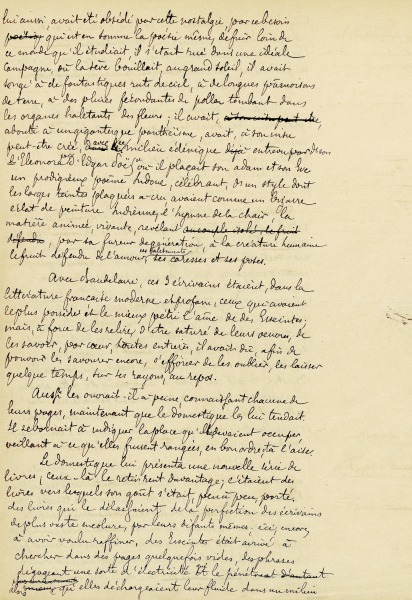 lui aussi, avait été obsédé par cette nostalgie, par ce besoin
qui est en somme la poésie même, de fuir loin de
ce monde qu'il étudiait ; il s'était rué dans une idéale
campagne, où la sève bouillait, au grand soleil, il avait
songé à de fantastiques ruts de ciel, à de longues pâmoisons
de terre, à des pluies fécondantes de pollen tombant dans
les organes haletants des fleurs ; il avait,
abouti à un gigantesque panthéisme, avait, à son insu
peut-être créé, avec ce milieu édénique
où il plaçait son adam et son Eve
un prodigieux poëme hindou, célébrant, en un style dont
les larges teintes plaquées à cru avaient comme un bizarre
éclat de peinture Indienne, l'hymne de la chair, la
matière animée, vivante, révélant
par sa fureur de génération, à la créature humaine
le fruit défendu de l'amour, ses caresses et ses poses.
Avec Baudelaire, ces 3 écrivains étaient, dans la
littérature française moderne et profane, ceux qui avaient
le plus possédé et le mieux pétri l'âme de des Esseintes.
mais, à force de les relire, d'être saturé de leurs oeuvres, de
les savoir, par coeur, toutes entières, il avait dû, afin de
pouvoir les savourer encore, s'efforcer de les oublier, les laisser
quelque temps, sur ses rayons, au repos.
Aussi les ouvrait-il à peine, connaissant chacune de
leurs pages, maintenant que le domestique les lui tendait.
Il se bornait à indiquer la place qu'ils devaient occuper,
veillant à ce qu'elles fussent rangées, en bon ordre, à l'aise.
Le domestique lui présenta une nouvelle série de
livres ; ceux-là le retinrent davantage ; c'étaient des
livres vers lesquels son goût s'était, peu à peu, porté,
des livres qui le délassaient de la perfection des écrivains
de plus vaste encolure, par leurs défauts mêmes. ici, encore,
à avoir voulu raffiner, des Esseintes était arrivé à
chercher dans des pages quelquefois vides, des phrases
dégageant une sorte d'électricité et le pénétrant d'autant
qu'elles déchargeaient leur fluide dans un milieu